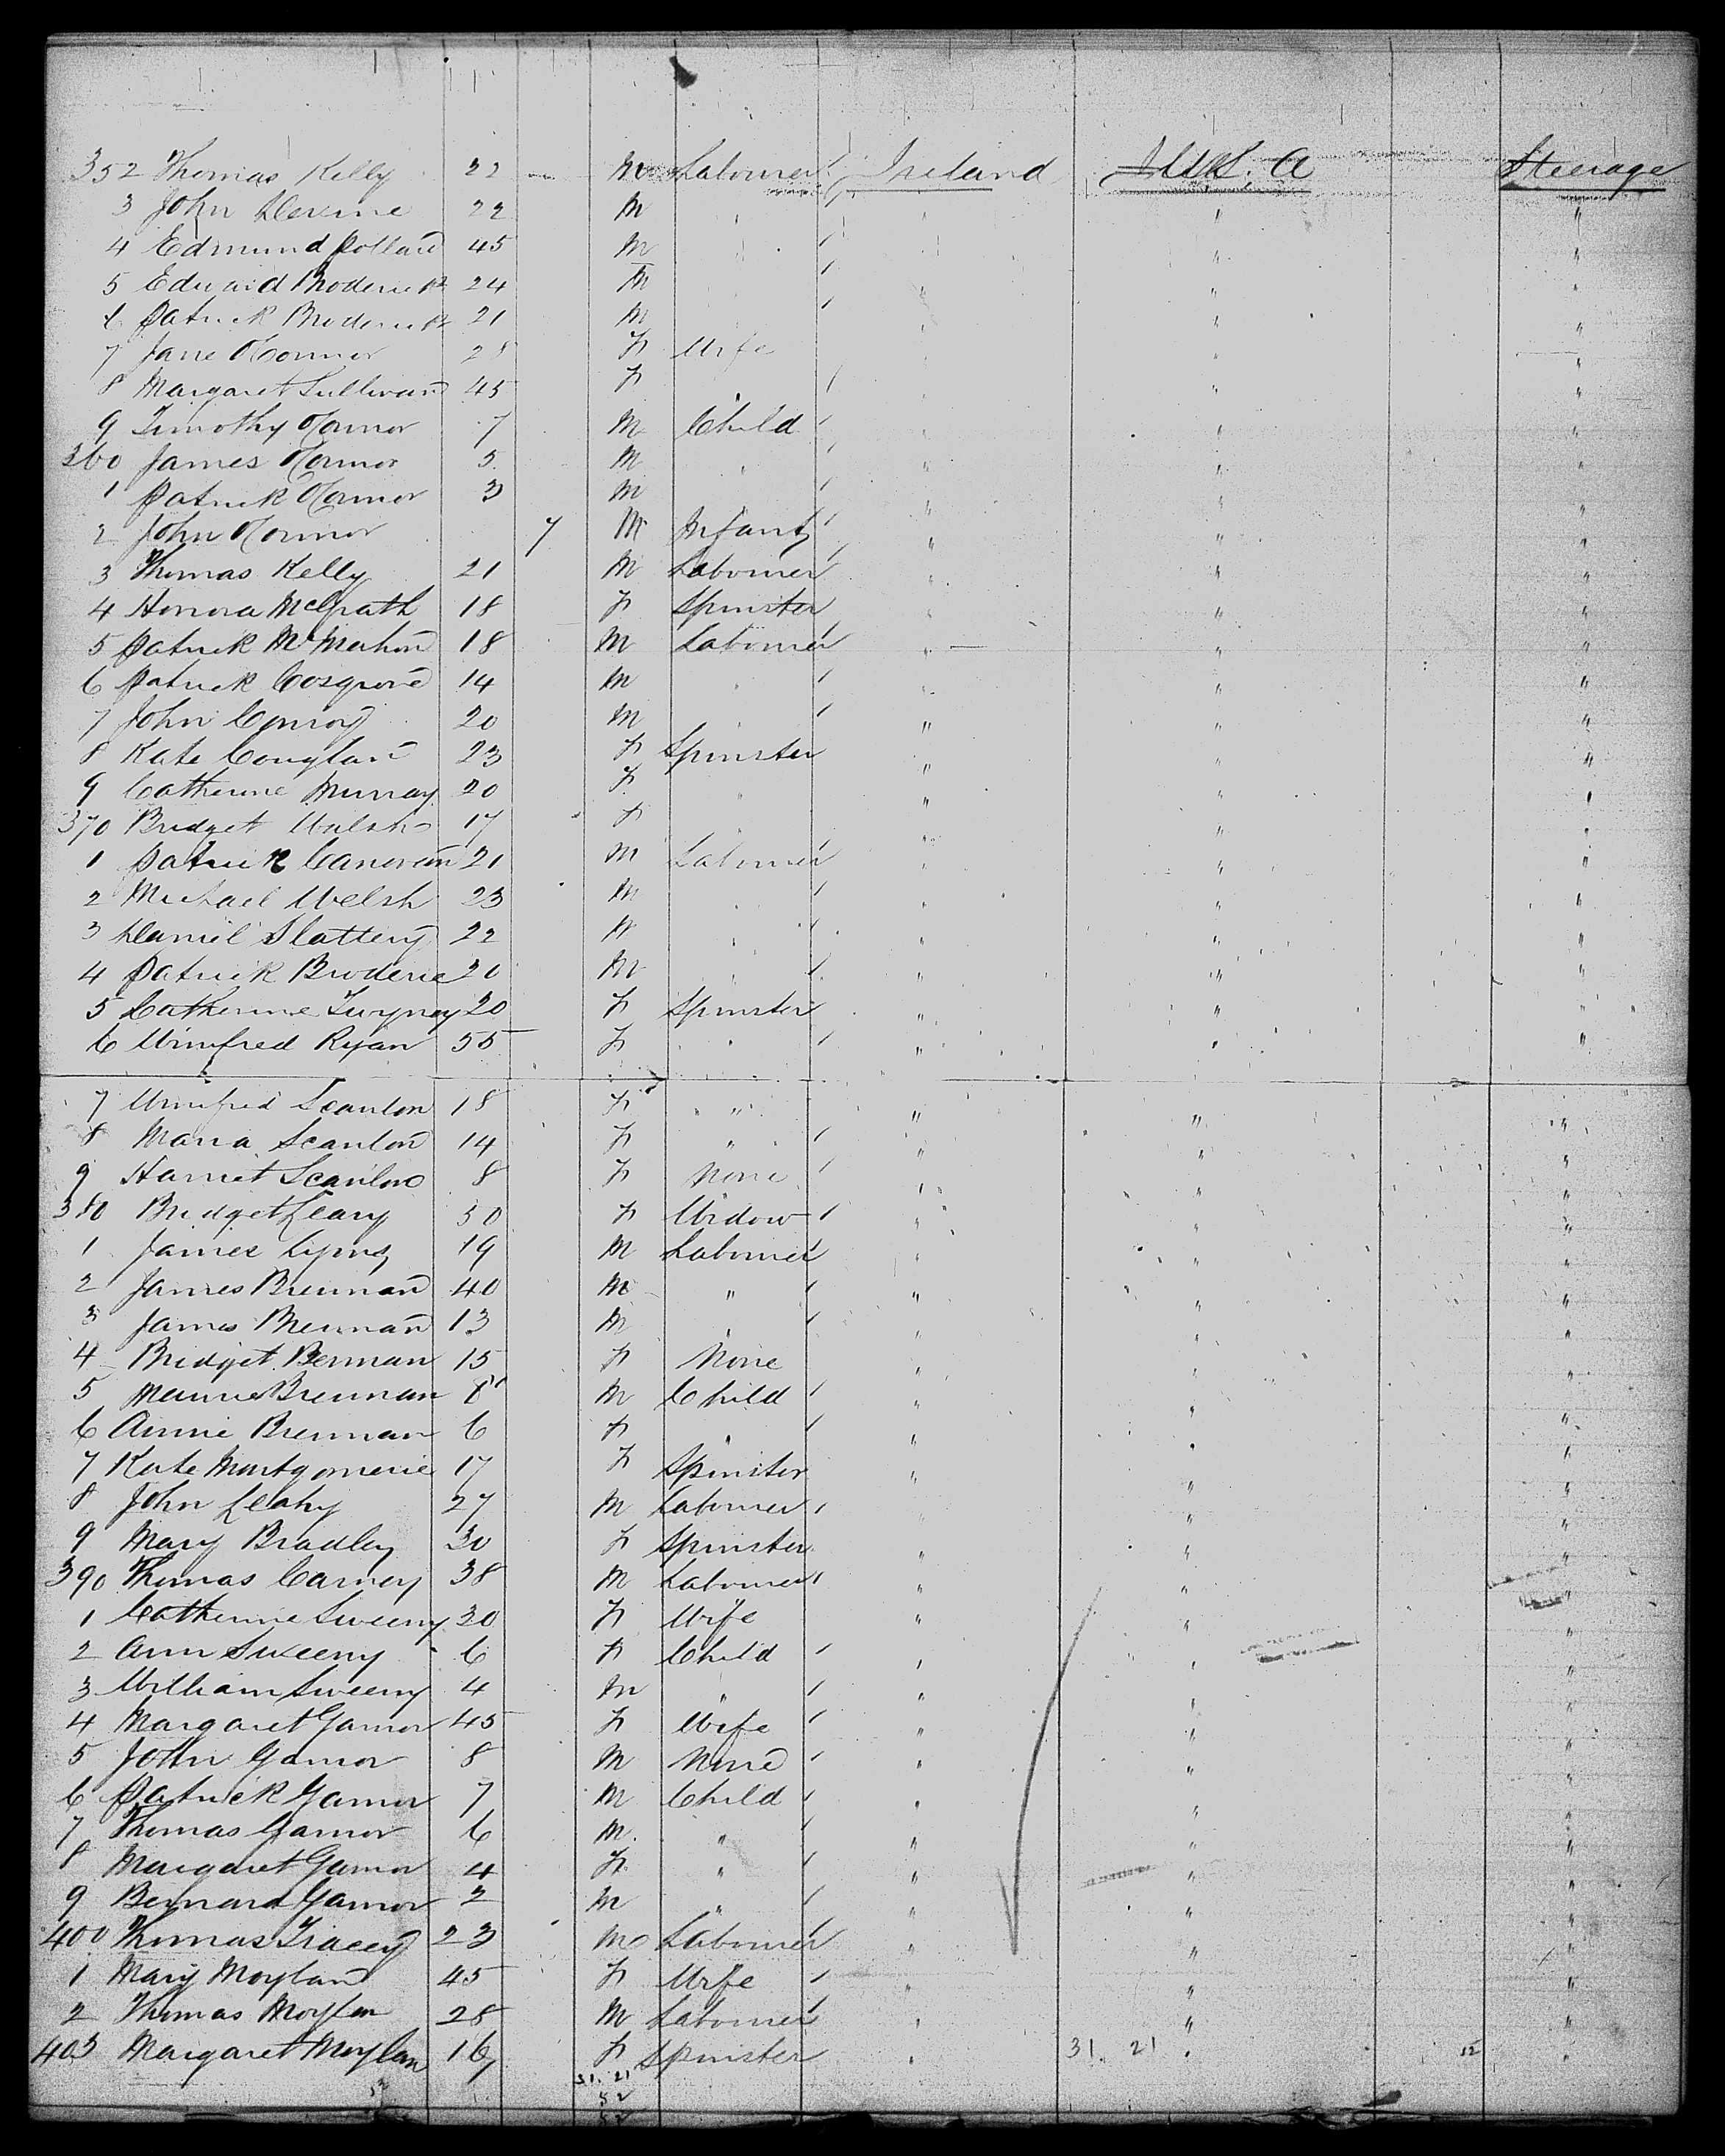 352 Thomas Kelly 22 M Labourer Ireland U.S.A Steerage
3 John Devine 22 M " " " "
4 Edmund Pollard 45 M " " " "
5 Edward Broderick 24 M " " " "
6 Patrick Broderick 21 M " " " "
7 Jane O'Connor 28 F Wife " " "
8 Margaret Sullivan 45 F " " " "
9 Timothy O'Connor 7 M Child " " "
360 James O'Connor 5 M " " " "
1 Patrick O'Connor 3 M " " " "
2 John O'Connor 7 M Infant " " "
3 Thomas Kelly 21 M Labourer " " "
4 Honora McGrath 18 F Spinster " " "
5 Patrick McMahon 18 M Labourer " " "
6 Patrick Cosgrove 14 M " " " "
7 John Conroy 20 M " " " "
8 Kate Couglan 23 F Spinster " " "
9 Catherine Murray 20 F " " " "
370 Bridget Walsh 17 F " " " "
1 Patrick Canovan 21 M Labourer " " "
2 Michael Welsh 23 M " " " "
3 Daniel Slattery 22 M " " " "
4 Patrick Broderic 20 M " " " "
5 Catherine Twyney 20 F Spinster " " "
6 Winifred Ryan 55 F " " " "
7 Winifred Scanlon 18 F " " " "
8 Maria Scanlon 14 F " " " "
9 Harriet Scanlon 8 F None " " "
380 Bridget Leary 50 F Widow " " "
1 James Lyons 19 M Labourer " " "
2 James Brennan 40 M " " " "
3 James Brennan 13 M " " " "
4 Bridget Bernnan 15 F None " " "
5 Brennan 8 M Child " " "
6 Annie Brennan 6 F " " " "
7 Kate Montgomerie 17 F Spinster " " "
8 John Leahy 27 M Labourer " " "
9 Mary Bradley 30 F Spinster " " "
390 Thomas Carney 38 M Labourer " " "
1 Catherine Sweeny 30 F Wife " " "
2 Ann Sweeny 6 F Child " " "
3 William Sweeny 4 M " " " "
4 Margaret Gainor 45 F Wife " " "
5 John Gainor 8 M None " " "
6 Patrick Gainor 7 M Child " " "
7 Thomas Gainor 6 M " " " "
8 Margaret Gainor 4 F " " " "
9 Bernard Gainor 2 M " " " "
400 Thomas Tracey 23 M Labourer " " "
1 Mary Moylan 45 F Wife " " "
2 Thomas Moylan 28 M Labourer " " "
403 Margaret Moylan 16 F Spinster " 31. 21 " 52 "
31. 21
52